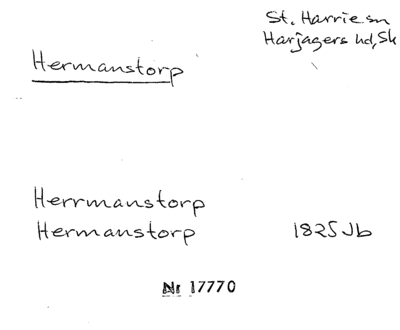 St. Harrie sn
Harjagers hd, Sk
Hermanstorp
Herrmanstorp
Hermanstorp 1825 Jb
Nr 17770